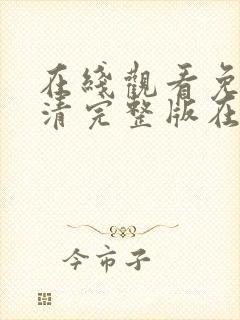 在綫觀看免
清完整版在
今市子